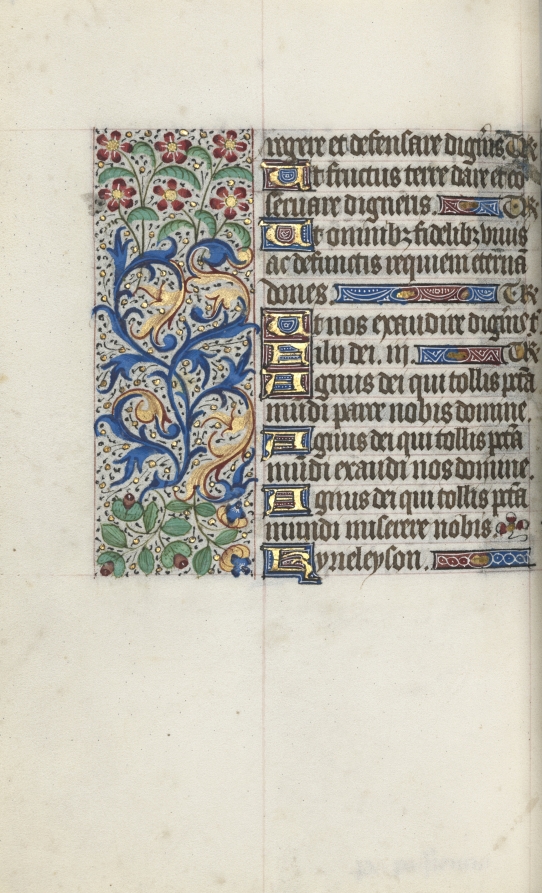 regere et defensare digneris Te R
Ut fructus terre dare et co
servare digneris. Te R
Ut omnibz fidelibz vivis
ac defunctis requiem eterna
dones Te R
Ut nos exaudire digneris
Fili dei. iii. Te R
Agnus dei qui tollis pcca
mudi parce nobis domine
Agnus dei qui tollis pcca
mudi exaudi nos domine.
Agnus dei qui tollis pcca
mundi miserere nobis.
Kyneleyson.